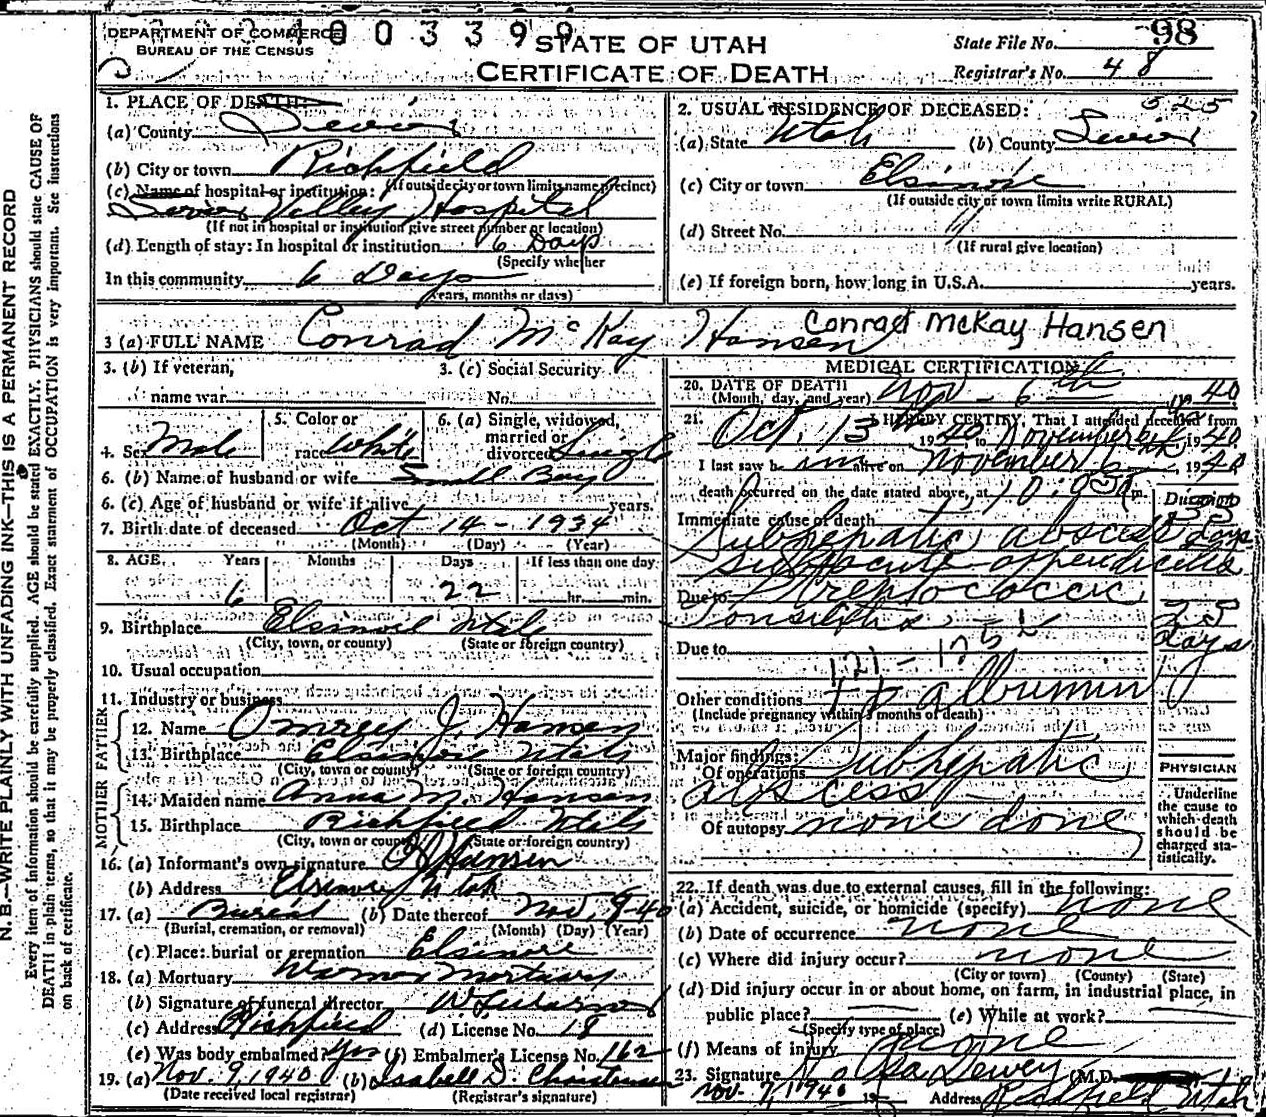 DEPARTMENT OF COMMERCE
BUREAU OF THE CENSUS
1003399
STATE OF UTAH
CERTIFICATE OF DEATH
State File No. 98
Registrar's No. 48
N. B.—WRITE PLAINLY WITH UNFADING INK—THIS IS A PERMANENT RECORD
Every item of information should be carefully supplied. AGE should be stated EXACTLY. PHYSICIANS should state CAUSE OF
DEATH in plain terms, so that it may be properly classified. Exact statement of OCCUPATION is very important. See instructions
on back of certificate.
1. PLACE OF DEATH:
(a) County Sevier
(b) City or town Richfield
(If outside city or town limits name precinct)
(c) Name of hospital or institution:
Sevier Valley Hospital
(If not in hospital or institution give street number or location)
(d) Length of stay: In hospital or institution 6 Days
(Specify whether
In this community 6 Days
years, months or days)
2. USUAL RESIDENCE OF DECEASED: 525
(a) State Utah (b) County Sevier
(c) City or town Elsinore
(If outside city or town limits write RURAL)
(d) Street No. "
(If rural give location)
(e) If foreign born, how long in U.S.A. years.
3 (a) FULL NAME Conrad McKay Hansen Conrad McKay Hansen
3. (b) If veteran,
name war
3. (c) Social Security
No.
4. Sex Male
5. Color or
race White
6. (a) Single, widowed,
married or
divorced Single
6. (b) Name of husband or wife Small Boy
6. (c) Age of husband or wife if alive years.
7. Birth date of deceased Oct 14 - 1934
(Month) (Day) (Year)
8. AGE Years Months Days If less than one day
6 22 hr. min.
9. Birthplace Elsinore Utah
(City, town, or county) (State or foreign country)
10. Usual occupation
11. Industry or business
FATHER
12. Name Omrey J. Hansen
13. Birthplace Elsinore Utah
(City, town or county) (State or foreign country)
MOTHER
14. Maiden name Anna M. Hansen
15. Birthplace Richfield Utah
(City, town or county) (State or foreign country)
16. (a) Informant's own signature Hansen
(b) Address Elsinore Utah
17. (a) Burial (b) Date thereof Nov. 9 40
(Burial, cremation, or removal) (Month) (Day) (Year)
(c) Place: burial or cremation Elsinore
18. (a) Mortuary Mortuary
(b) Signature of funeral director
(c) Address Richfield (d) License No. 18
(e) Was body embalmed? Yes (f) Embalmer's License No. 162
19. (a) Nov. 9, 1940 (b) Isabell D. Christensen
(Date received local registrar) (Registrar's signature)
MEDICAL CERTIFICATION
20. DATE OF DEATH
(Month, day, and year) Nov - 6th 1940
21. I HEREBY CERTIFY, That I attended deceased from
Oct. 13th 1940 to November 6th, 1940
I last saw him alive on November 6th, 1940
death occurred on the date stated above, at 10: P m.
Duration
Immediate cause of death
Subhepatic abscess days
subacute appendicitis
Due to Streptococcic
Tonsilitis - 25 days
Due to
121 - 115
Other conditions ++ albumin
(Include pregnancy within 3 months of death)
Major findings:
Of operations Subhepatic
abscess
Of autopsy none done
PHYSICIAN
Underline
the cause to
which death
should be
charged sta-
tistically.
22. If death was due to external causes, fill in the following:
(a) Accident, suicide, or homicide (specify) none
(b) Date of occurrence none
(c) Where did injury occur? none
(City or town) (County) (State)
(d) Did injury occur in or about home, on farm, in industrial place, in
public place? (e) While at work?
(Specify type of place)
(f) Means of injury none
23. Signature Dewey (M.D.
Nov. 7, 1940 19 Address Richfield Utah